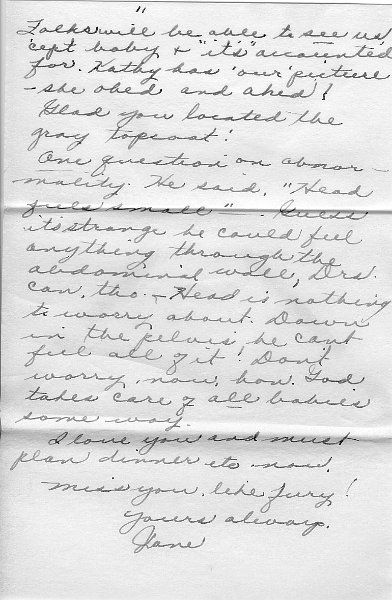 "
Folks will be able to see us,
'cept baby & "it's" accounted
for. Kathy has 'our' picture
- she ohed and ahed!
Glad you located the
gray topcoat!
One question on abnor -
mality. He said, "Head
feels small". Guess
its strange he could feel
anything through the
abdominal wall, Drs.
can, tho. - Head is nothing
to worry about. Down
in the pelvis, he can't
feel all of it! Don't
worry, now, hon. God
takes care of all babies
some way.
I love you and must
plan dinner etc now.
Miss you like fury!
Yours always,
Jane